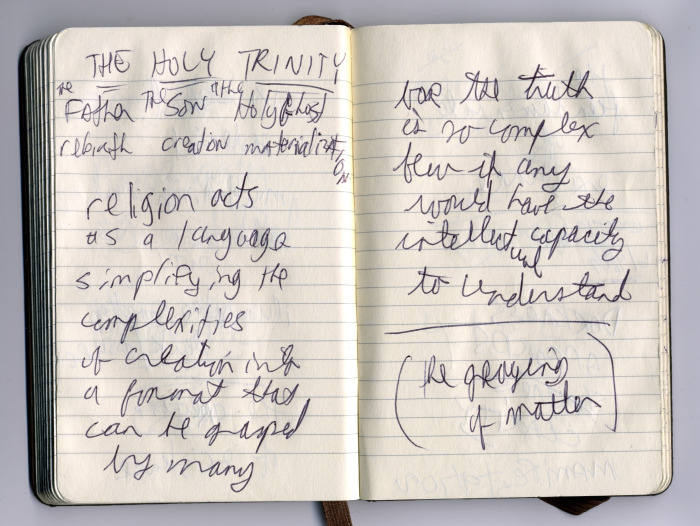 THE HOLY TRINITY
the Father the Son "the Holy Ghost
rebirth creation materialization
religion acts
as a language
simplifying the
complexities
of creation into
a format that
can be grasped
by many
for the truth
is so complex
few if any
would have the
intellectual capacity
to understand
(the graying
of matter)
manifestation